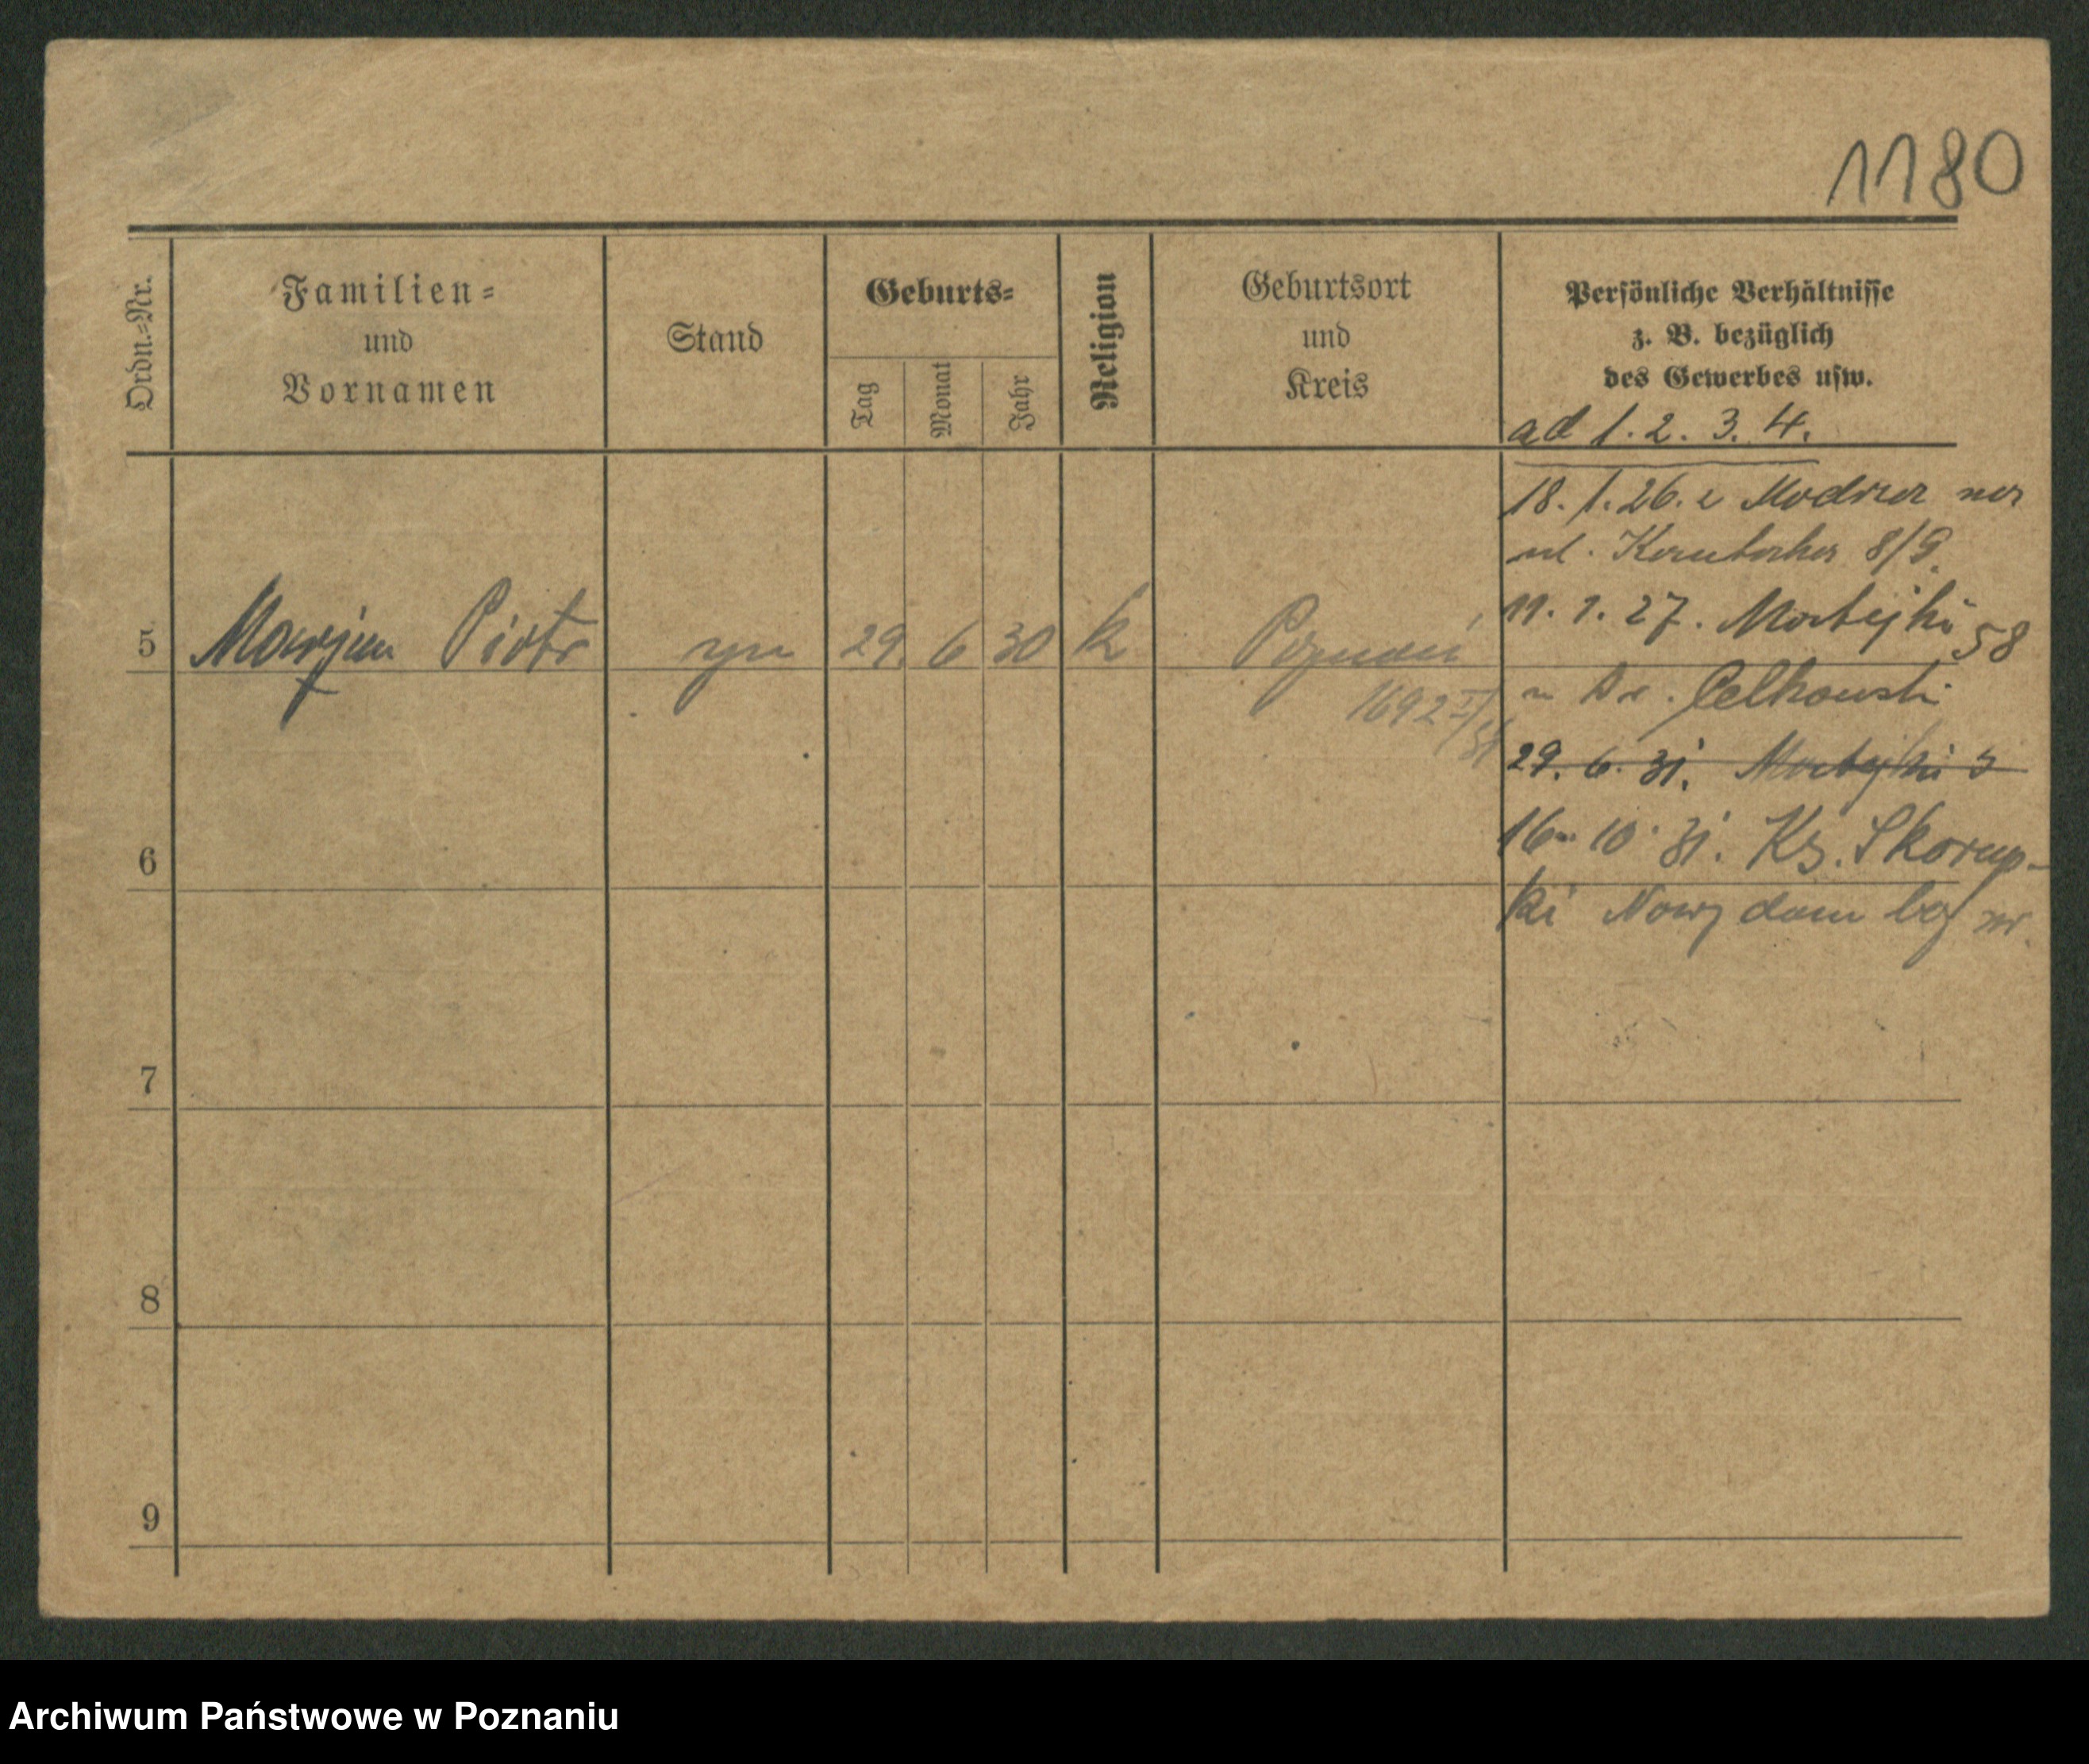 1180
Ordn.-Nr.
Familien-
und
Vornamen
Stand
Geburts-
Tag
Monat
Jahr
Religion
Geburtsort
und
Kreis
Persönliche Verhältnisse
z. B. bezüglich
des Gewerbes usw.
ad 1. 2. 3. 4.
18. 1. 26. z
ul. 8/9.
11. 1. 27. Matejki 58
5 Marjan Piotr syn 29. 6 30 k Poznań
1692
u Dr. Celkowski
29. 6. 31. Matejki 5
16. 10. 31. Ks. Skorup-
6
ki Nowy dom bez nr.
7
8
9
Archiwum Państwowe w Poznaniu